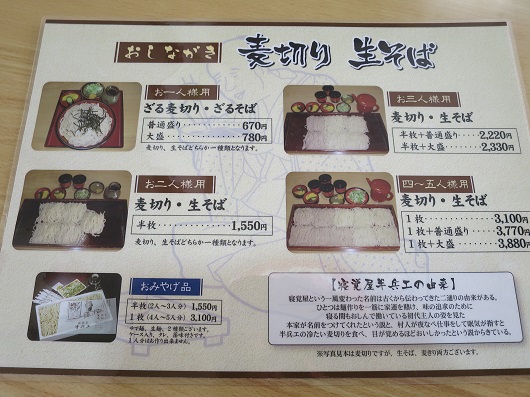 おしながき
麦切り 生そば
お一人様用
ざる麦切り・ざるそば
普通盛り 670円
大盛 780円
麦切り、生そばどちらか一種類となります。
お三人様用
麦切り・生そば
半枚+普通盛り 2,220円
半枚+大盛 2,330円
お二人様用
麦切り・生そば
半枚 1,550円
麦切り、生そばどちらか一種類となります。
四〜五人様用
麦切り・生そば
1枚 3,100円
1枚+普通盛り 3,770円
1枚+大盛 3,880円
おみやげ品
半枚(2人〜3人分) 1,550円
1枚(4人〜5人分) 3,100円
1人分はお作り出来ません。
【寝覚屋半兵エの由来】
寝覚屋という一風変わった名前は古くから伝わってきた二通りの由来がある。
ひとつは麺作りを一筋に家運を賭け、味の追求のために
寝る間もおしんで働いている初代主人の姿を見た
本家が名前をつけてくれたという説と、村人が夜なべ仕事をして眠気が指すと
半兵エの冷たい麦切りを食べ、目が覚めるほどおいしかったという説からである。
※写真見本は麦切りですが、生そば、麦きり両方ございます。